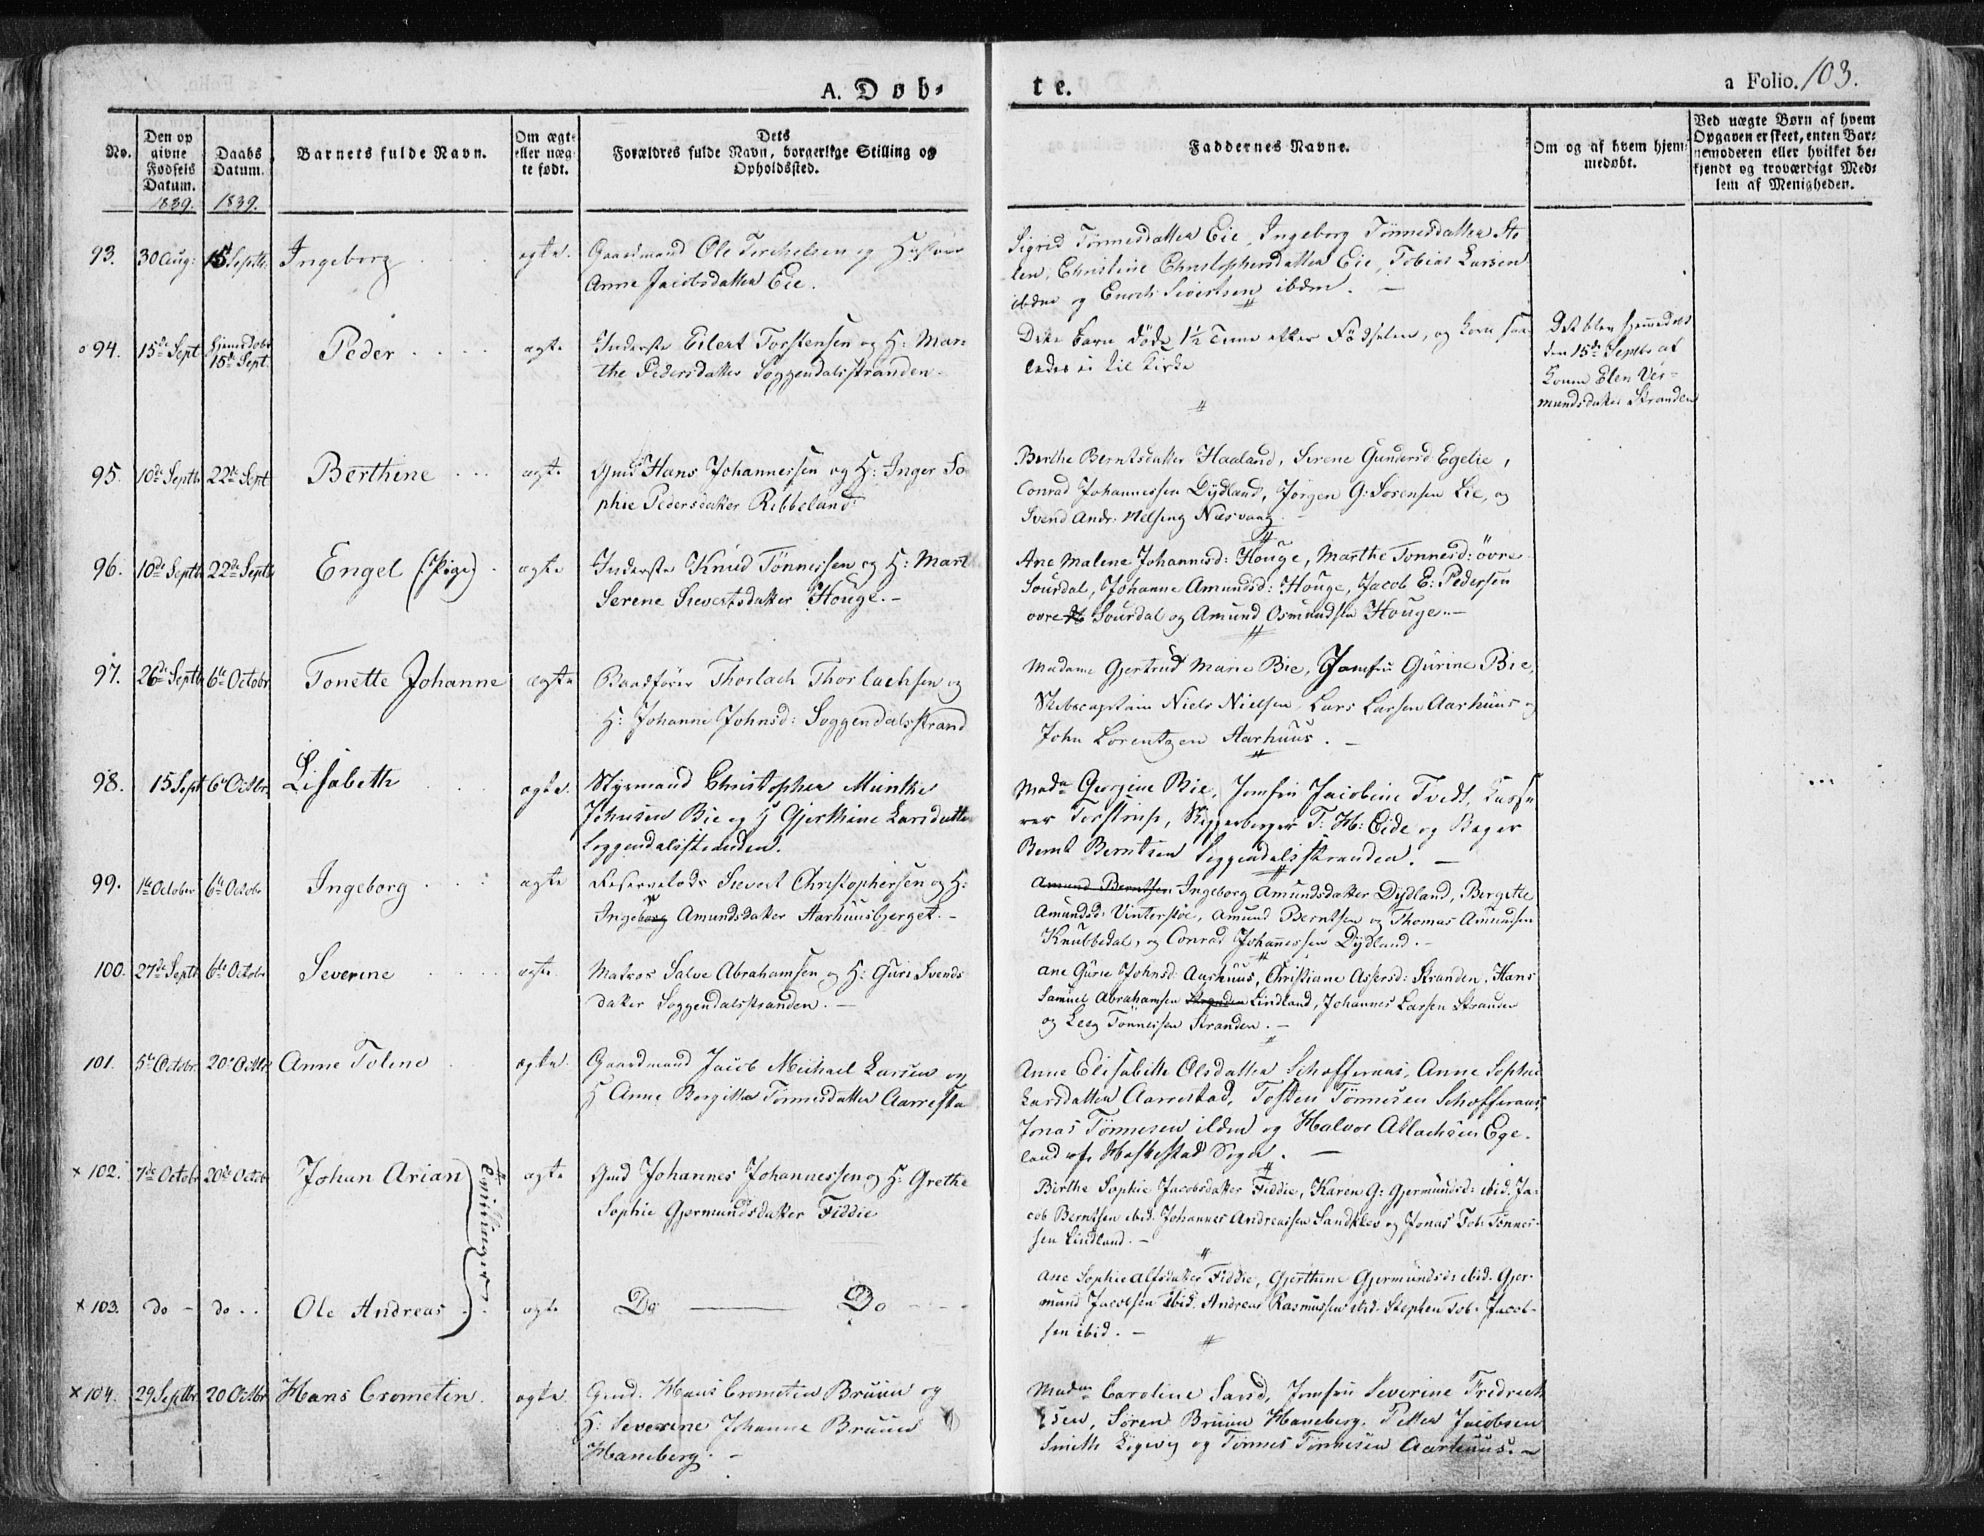 A. Døb-
te.
a Folio. 103.
No.
Den op
givne
Fødsels
Datum.
1839.
Daabs
Datum.
1839.
Barnets fulde Navn.
Om ægte
eller uæg-
te født.
Dets
Forældres fulde Navn, borgerlige Stilling og
Opholdssted.
Faddernes Navne.
Om og af hvem hjem-
medøbt.
Ved uægte Børn af hvem
Opgaven er skeet, enten Bar-
nemoderen eller hvilket be-
kjendt og troværdigt Med-
lem af Menigheden.
93. 30 Aug: 15 Septbr. Ingeborg ægte.
Gaardmand Ole Terchelsen og Hustrue
Anne Jacobsdatter Eie.
Sigrid Tønnesdatter Eie, Ingeborg Tønnesdatter Sto
len, Christine Christophersdatter Eie, Tobias Larsen
ibdm og Enoch Sivertsen ibdm. -
94. 15de Sept hjemedøbt
15de Sept. Peder ægte
Inderste Eilert Torstensen og H: Mar
the Pedersdatter Soggendalsstranden.
Dette barn døde 1½ Time efter Fødselen, og kom saa
ledes ei til Kirke
Det blev hjemmedøbt
den 15de Septbr af
Konen Elen Ver-
mundsdatter Stranden
95. 10de Septb 22de Sept Berthine ægte
Gmd Hans Johannessen og H: Inger So
phie Pedersdatter Ribbeland
Berthe Berntsdatter Haaland, Serene Gundersd Egelie,
Conrad Johannessen Dydland, Jørgen G: Sørensen Lie, og
Svend Andr: Helsing Næsvaag.
96. 10de Septb 22de Septb Engel (: Pige :) ægte
Inderste Knud Tønnessen og H: Mart
Serene Sievertsdatter Houge. -
Ane Malene Johannisd: Houge, Marthe Tønnesd: øvre
Sourdal, Johanne Amundsd: Houge, Jacob E: Pedersen
øvre Sourdal og Amund Osmundsen Houge. -
97. 26de Septb 6te Octobr Tonette Johanne ægte
Baadfører Thorlach Thorlachsen og
H: Johanne Johnsd: Soggendalsstrand
Madame Gjertrud Marie Bie, Jomfru Gurine Bie,
Skibscaptain Niels Nielsen, Lars Larsen Aarhuus og
John Lorentzen Aarhuus. -
98. 15 Sept 6te Octbr. Lisabeth ægte.
Styrmand Christopher Munthe
Johnsen Bie og H Gjerthine Larsdatter
Soggendalsstranden.
Made Georgine Bie, Jomfru Jacobine Tvedt, Kasse
rer Torstrup, Skiggerberger T. H: Eide og Bager
Bernt Berntsen Soggendalsstranden. -
99. 1te October 6te Octobr Ingeborg ægte
Reservelods Sievert Christophersen og H:
Ingeborg Amundsdatter Aarhuusberget. -
Amund Berntsen Ingeborg Amundsdatter Dydland, Bergitte
Amundsd: Vinterstøe, Amund Berntsen og Thomas Amundsen
Knubbedal, og Conrad Johannessen Dydland. -
100. 27de Septb 6te Octobr Severine ægte
Matros Salve Abrahamsen og H: Guri Svends
datter Soggendalsstranden. -
Ane Gurie Johnsd: Aarhuus, Christiane Assersd: Stranden, Hans
Samuel Abrahamsen Stranden Lindland, Johannes Larsen Stranden
og Leeg Tønnessen Stranden. -
101. 5te Octobr. 20de Octbr Anne Toline ægte.
Gaardmand Jacob Michael Larsen og
H Anne Bergitta Tønnesdatter Aarresta
Anne Elisabeth Olsdatter Schofferaas, Anne Sophie
Larsdatter Aarrestad, Tosten Tønnesen Schofferaas,
Jonas Tønnesen ibdm og Halvor Atlachsen Ege-
land af Heskestad Sogn. -
x 102. 7de Octobr 20de Octob Johan Arian ægte
Tvillinger.
Gmd Johannes Johannessen og H: Grethe
Sophie Gjermundsdatter Fiddie
Birthe Sophie Jacobsdatter Fiddie, Karen G: Gjermundsd: ibid. Ja-
cob Berntsen ibid. Johannes Andreassen Sandklev og Jonas Tob: Tønnes-
sen Lindland. -
x 103. do - do - - Ole Andreas ægte
Do Do
Ane Sophie Alfsdatter Fiddie, Gjerthine Gjermundsd: ibid. Gjer-
mund Jacobsen ibid. Andreas Rasmussen ibid. Stephen Tob: Jacob-
sen ibid. -
x 104. 29 Septbr. 20 Octbr Hans Crometin ægte
Gmd. Hans Crometin Bruun og
H: Severine Johanne Bruun
Haneberg. -
Madm Caroline Sand, Jomfru Severine Fredrich
sen, Søren Bruun Haneberg. Petter Jacobsen
Smith Eigevig og Tønnes Tønnesen Aarhuus. -